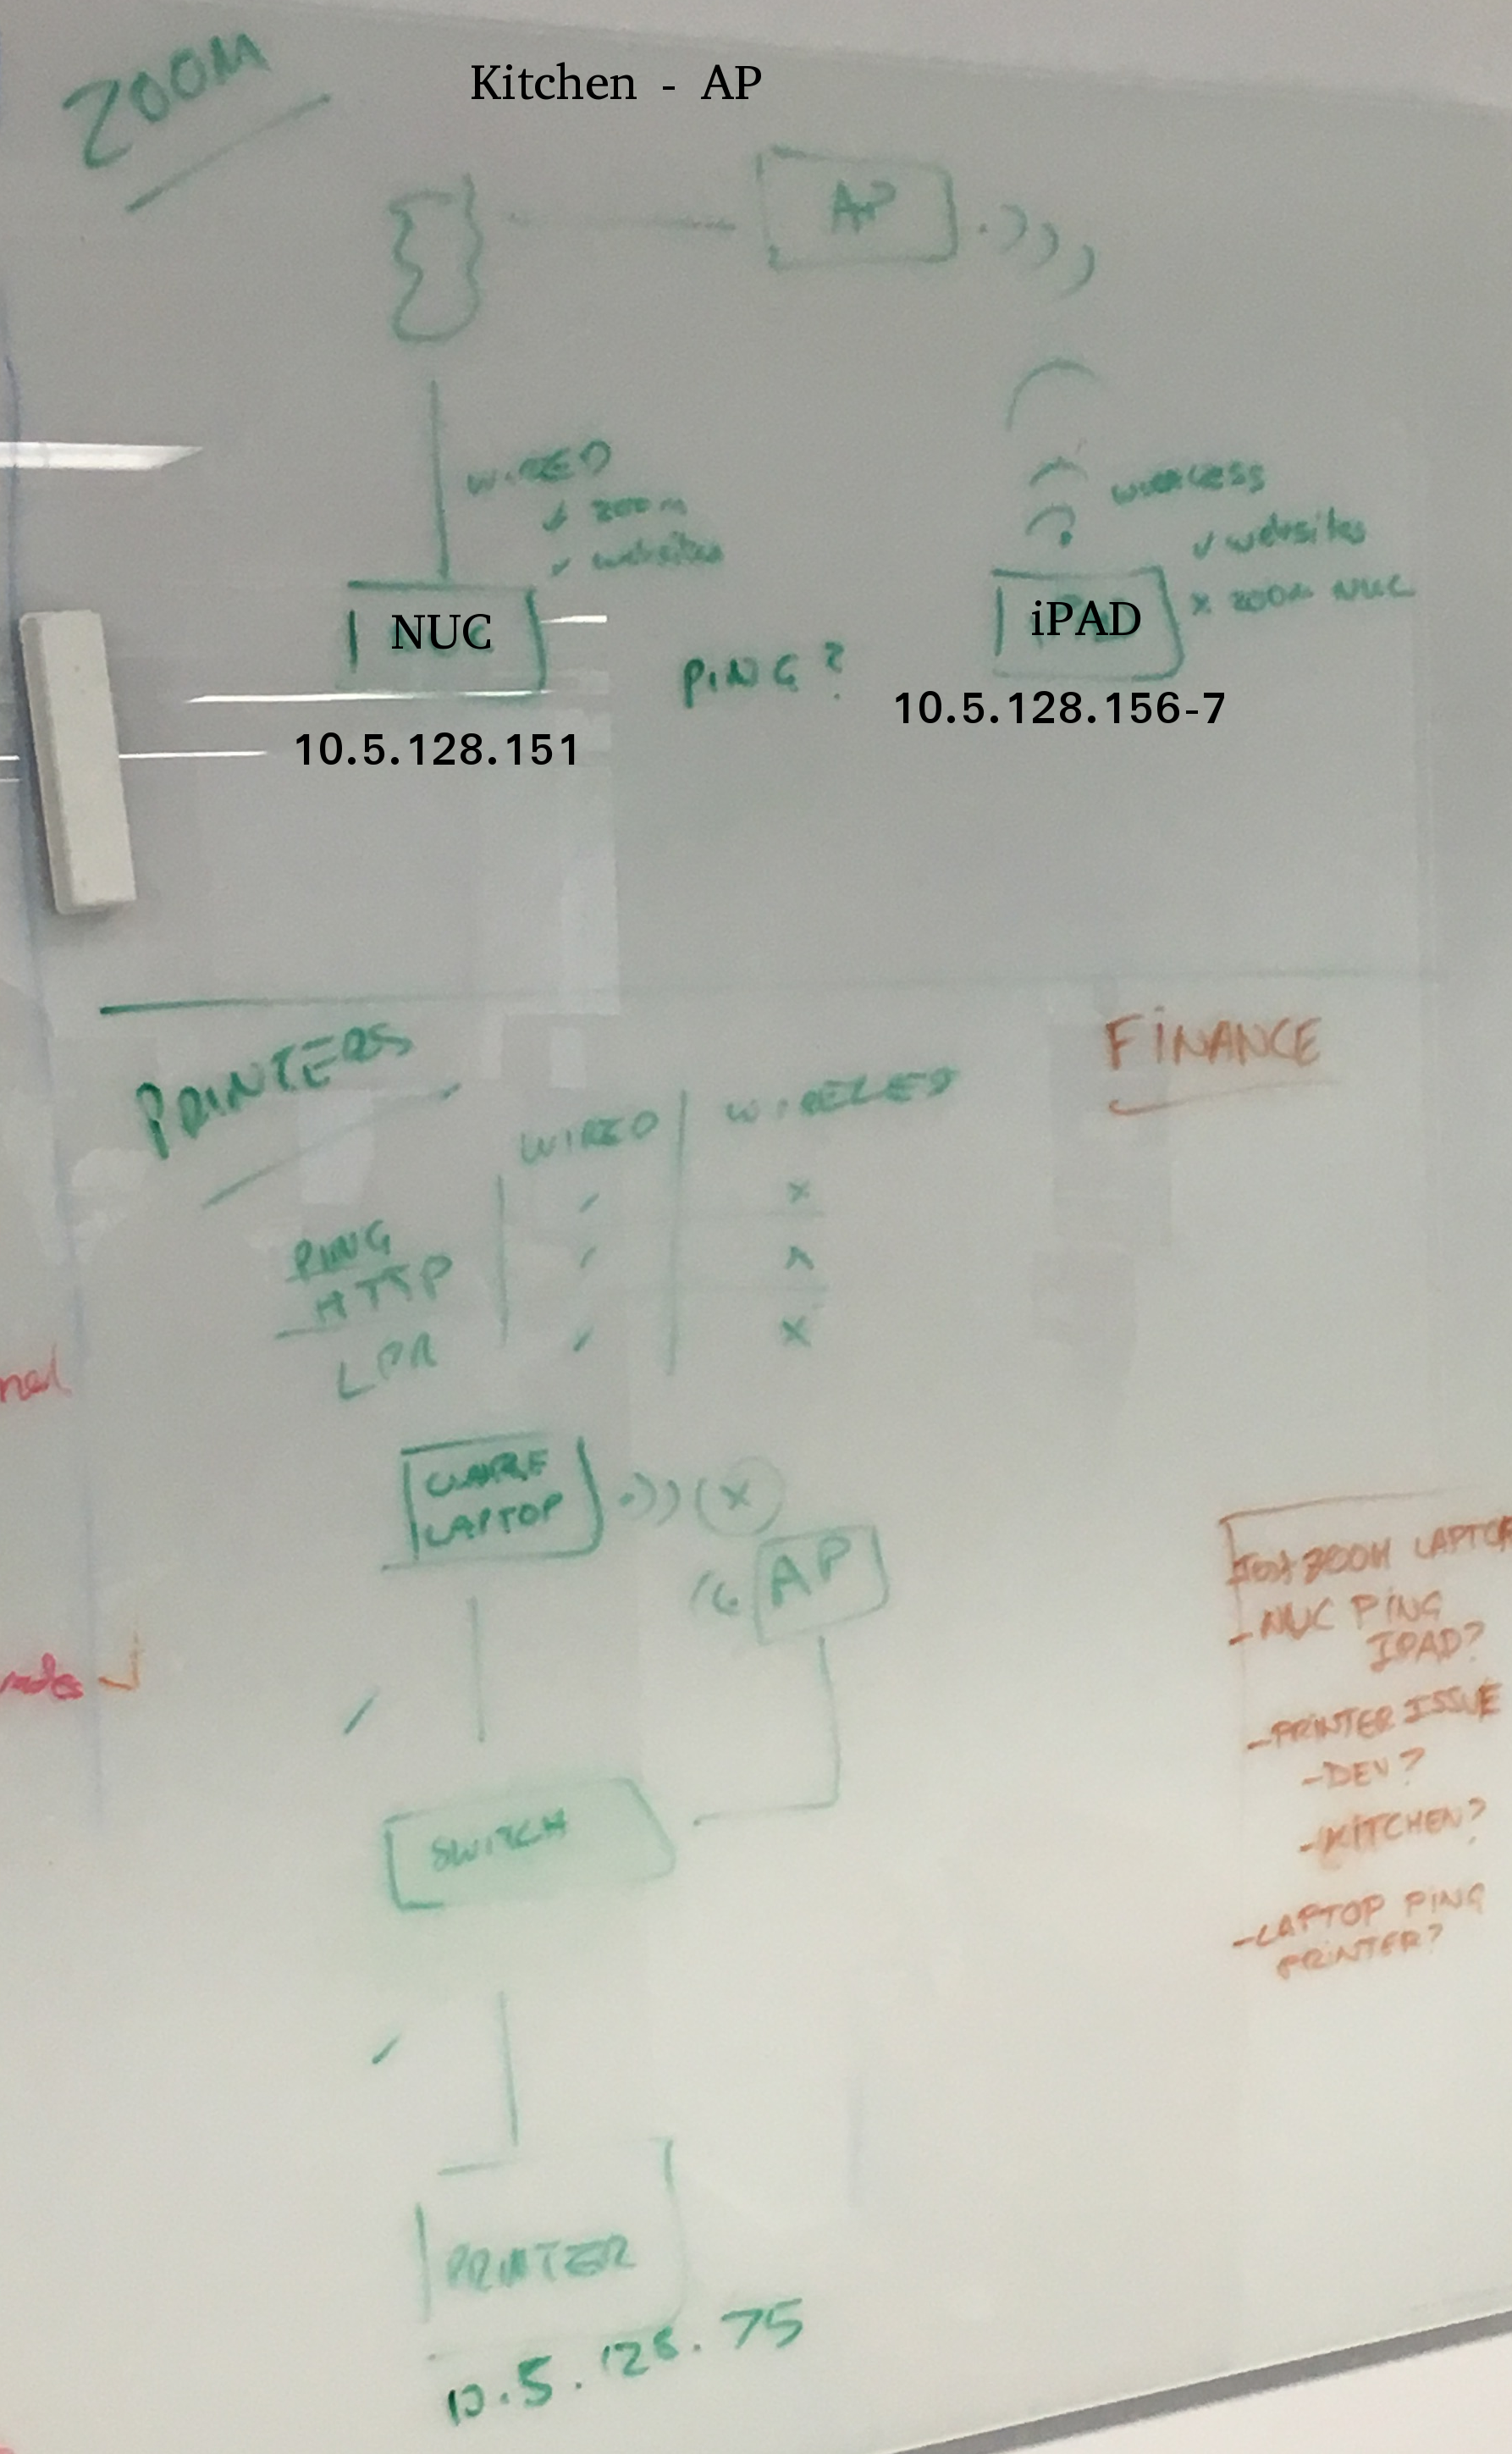 ZOOM
Kitchen - AP
AP
WIRED
✓ zoom
✓ websites
wireless
✓ websites
x zoom NUC
NUC
iPAD
PING?
10.5.128.151
10.5.128.156-7
PRINTERS
FINANCE
WIRED
WIRELESS
PING ✓ x
HTTP ✓ x
LPR ✓ x
CLAIRE
LAPTOP
x
AP
SWITCH
PRINTER
10.5.128.75
Test ZOOM LAPTOP
- NUC PING
IPAD?
- PRINTER ISSUE
- DEV?
- KITCHEN?
- LAPTOP PING
PRINTER?